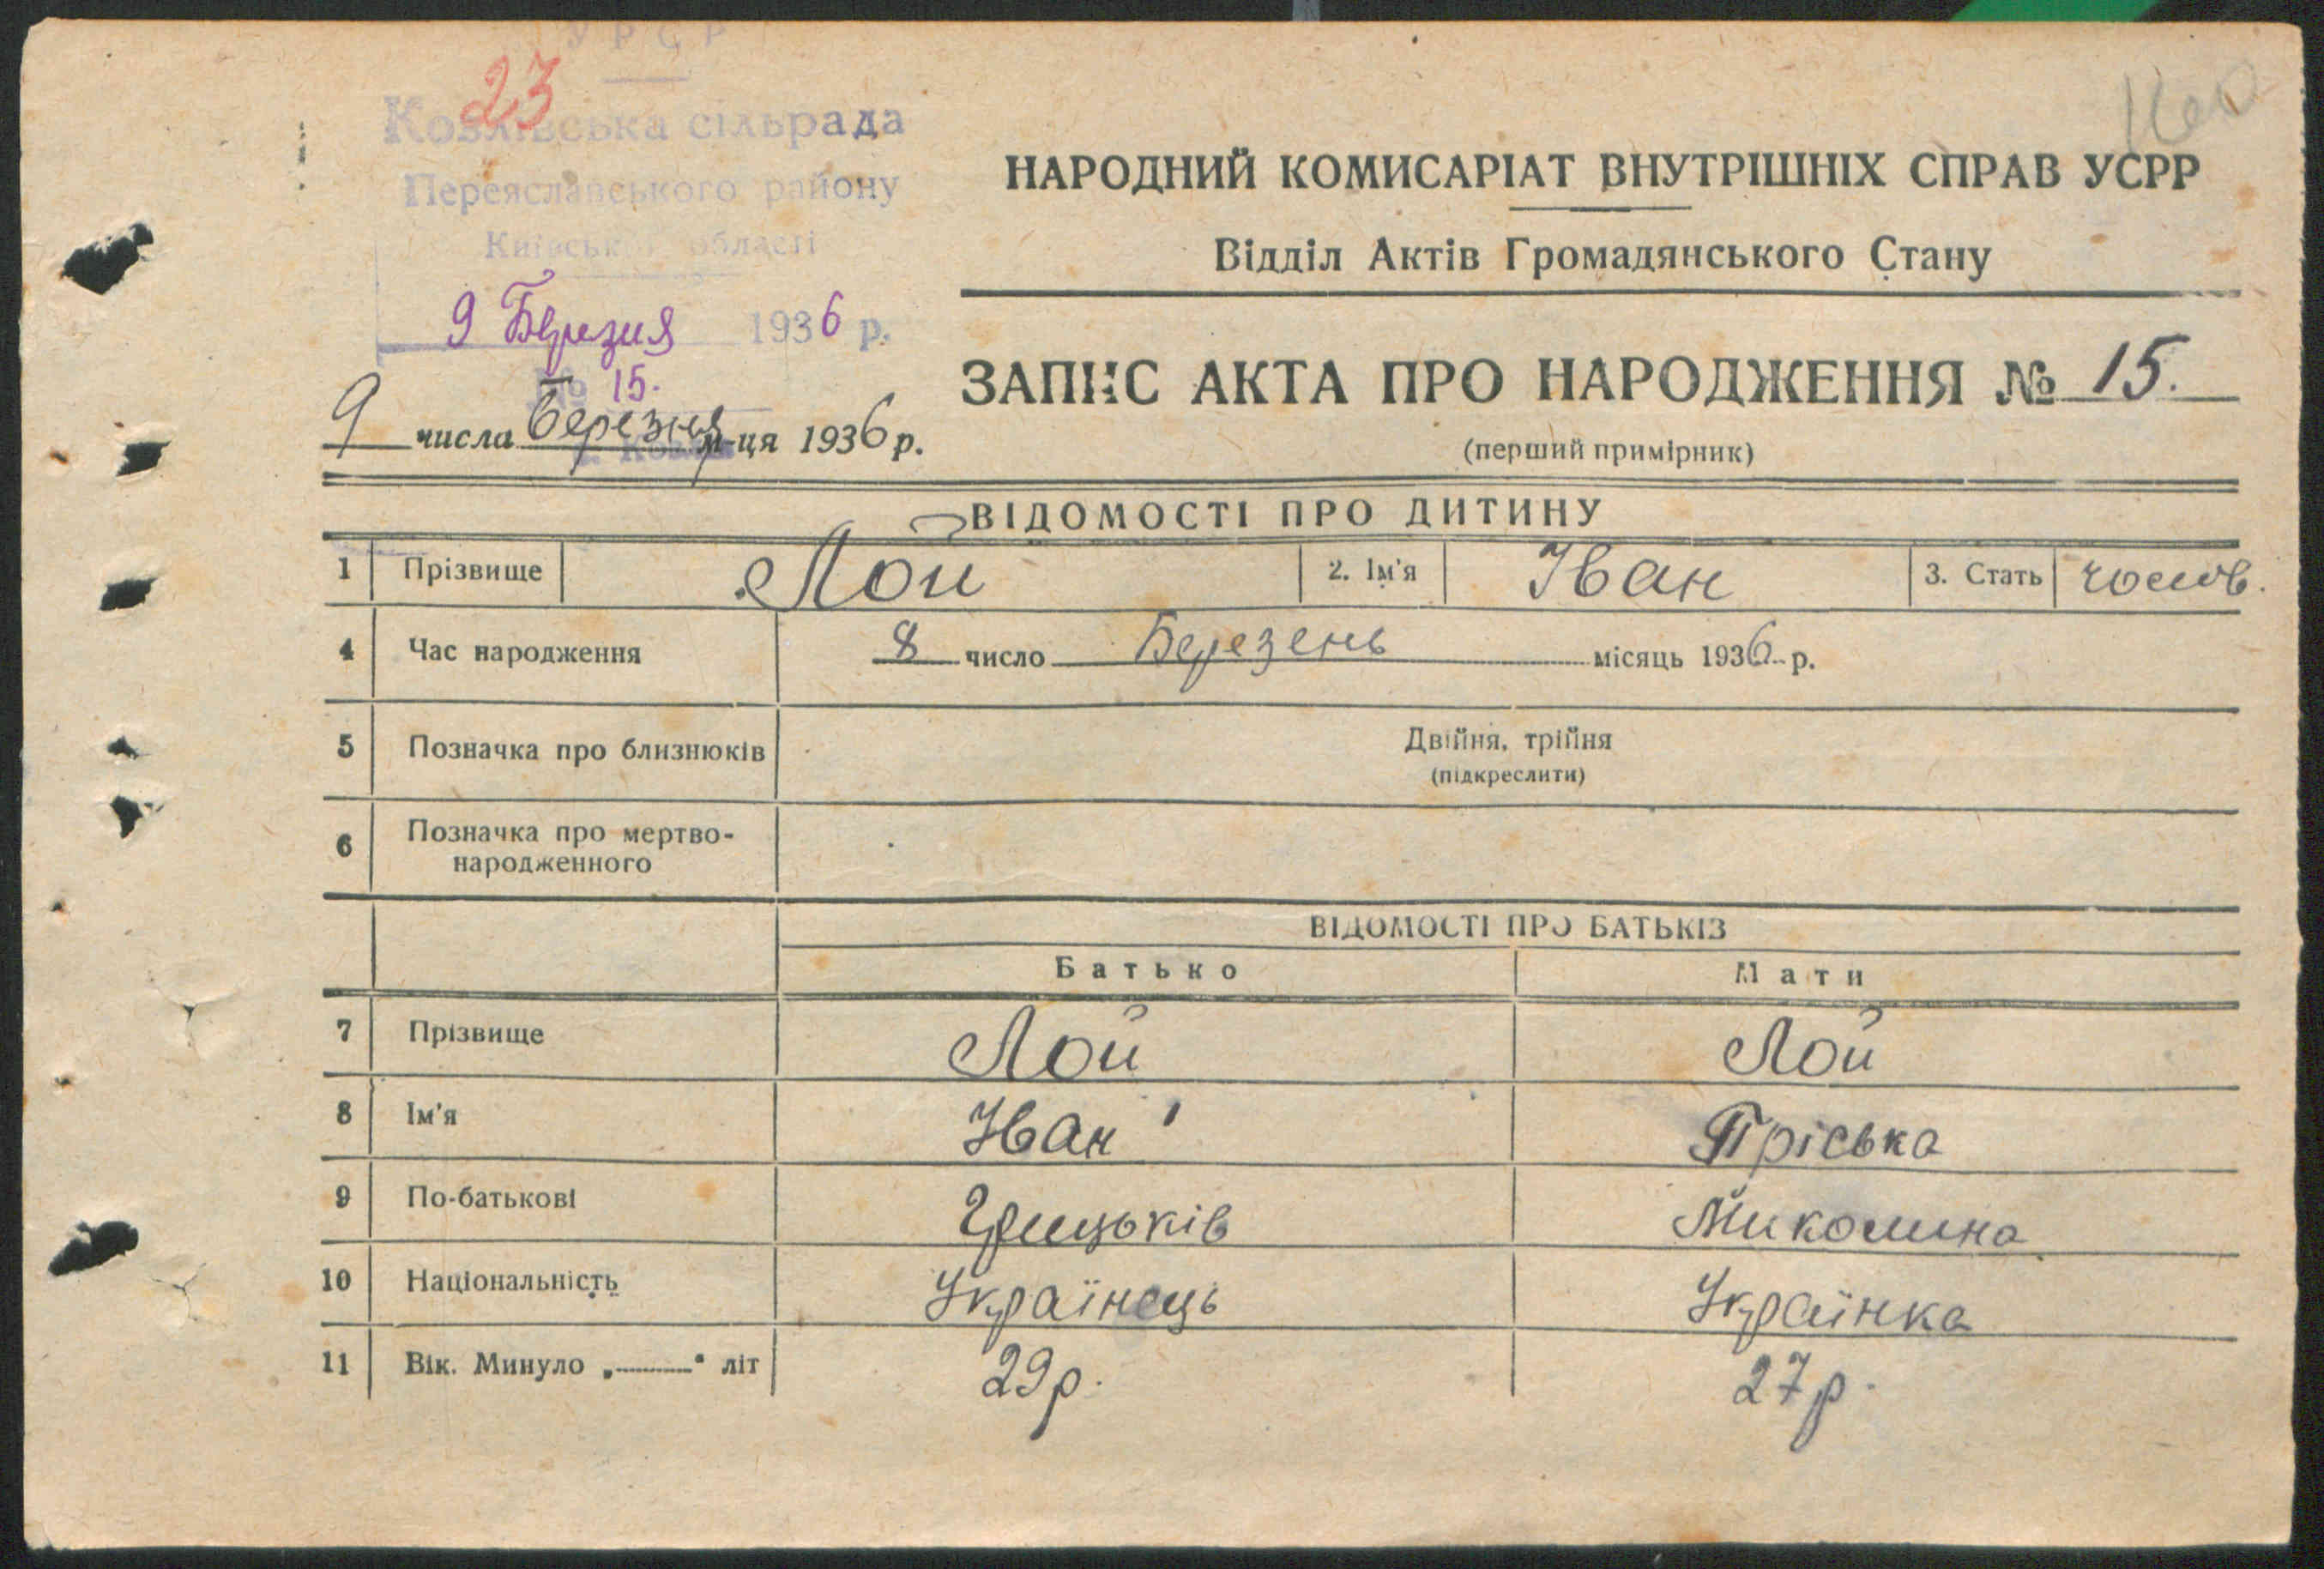 УРСР
23
Козлівська сільрада
Переяславського району
Київської області
9 Березня 1936 р.
№ 15.
9 числа березня м-ця 1936 р.
НАРОДНИЙ КОМИСАРІАТ ВНУТРІШНІХ СПРАВ УСРР
Відділ Актів Громадянського Стану
ЗАПИС АКТА ПРО НАРОДЖЕННЯ № 15.
(перший примірник)
ВІДОМОСТІ ПРО ДИТИНУ
1 Прізвище Лой 2. Ім'я Іван 3. Стать чолов.
4 Час народження 8 число Березень місяць 1936 р.
5 Позначка про близнюків Двійня, трійня
(підкреслити)
6 Позначка про мертво-
народженного
ВІДОМОСТІ ПРО БАТЬКІВ
Батько Мати
7 Прізвище Лой Лой
8 Ім'я Іван Пріська
9 По-батькові Грицьків Миколина
10 Національність Українець Українка
11 Вік. Минуло „ “ літ 29 р. 27 р.